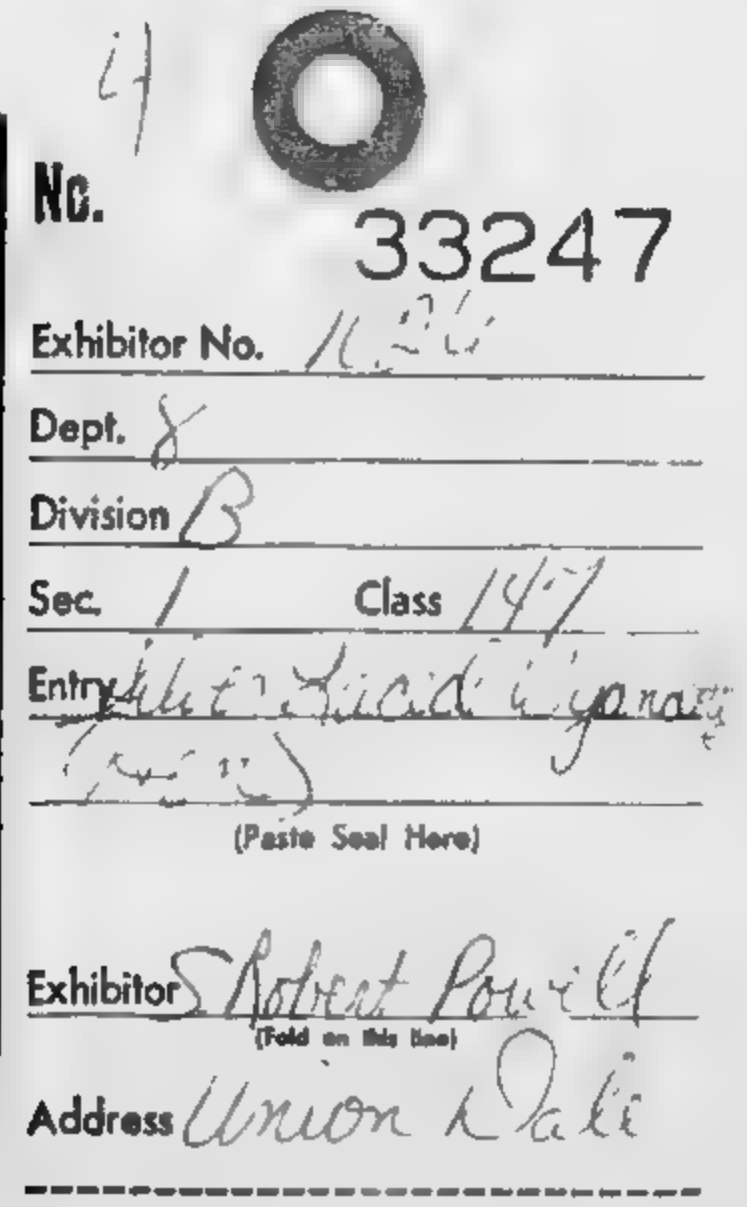 No.
33247
Exhibitor No.
Dept. 8
Division B
Sec. 1 Class 147
Entry
(Paste Seal Here)
Exhibitor S Robert Powell
(Fold on this line)
Address Union Dale